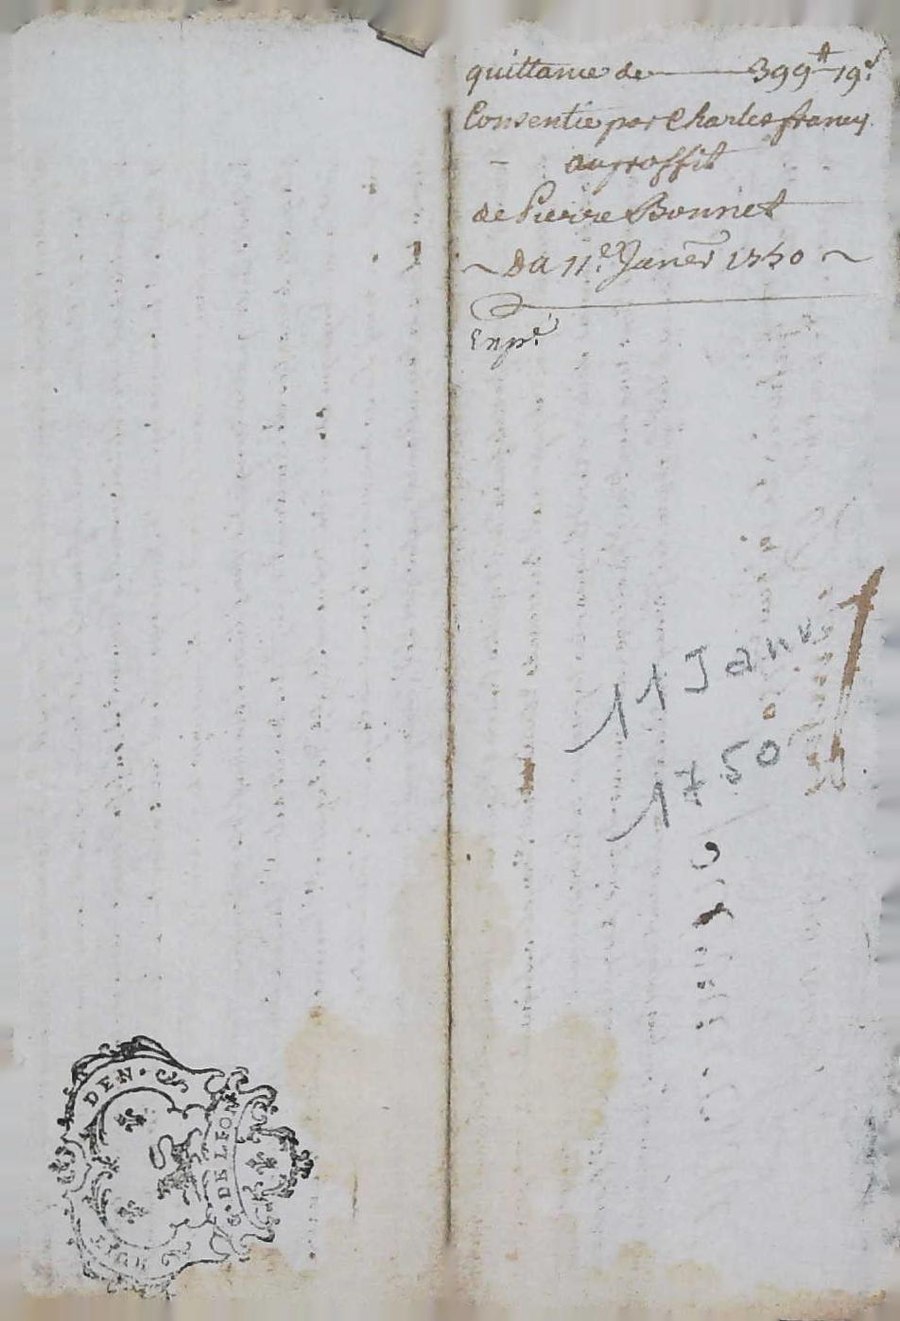 quittance de — 399ᵗᵗ 19ˢ
Consentie par Charles françs
au proffit
de Pierre Bonnet
~ Du 11ᵉ. Janer 1750 ~
Expé.
11 Janv
1750
DEN.
DE LEON